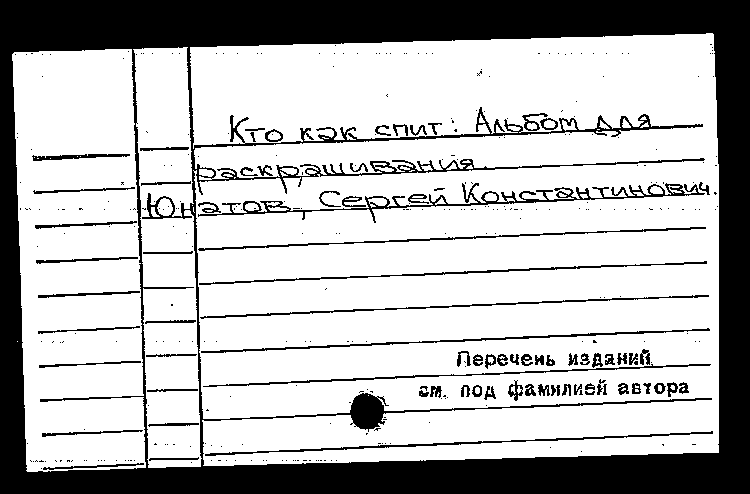 Кто как спит: Альбом для
раскрашивания.
Юнатов, Сергей Константинович.
Перечень изданий
см. под фамилией автора